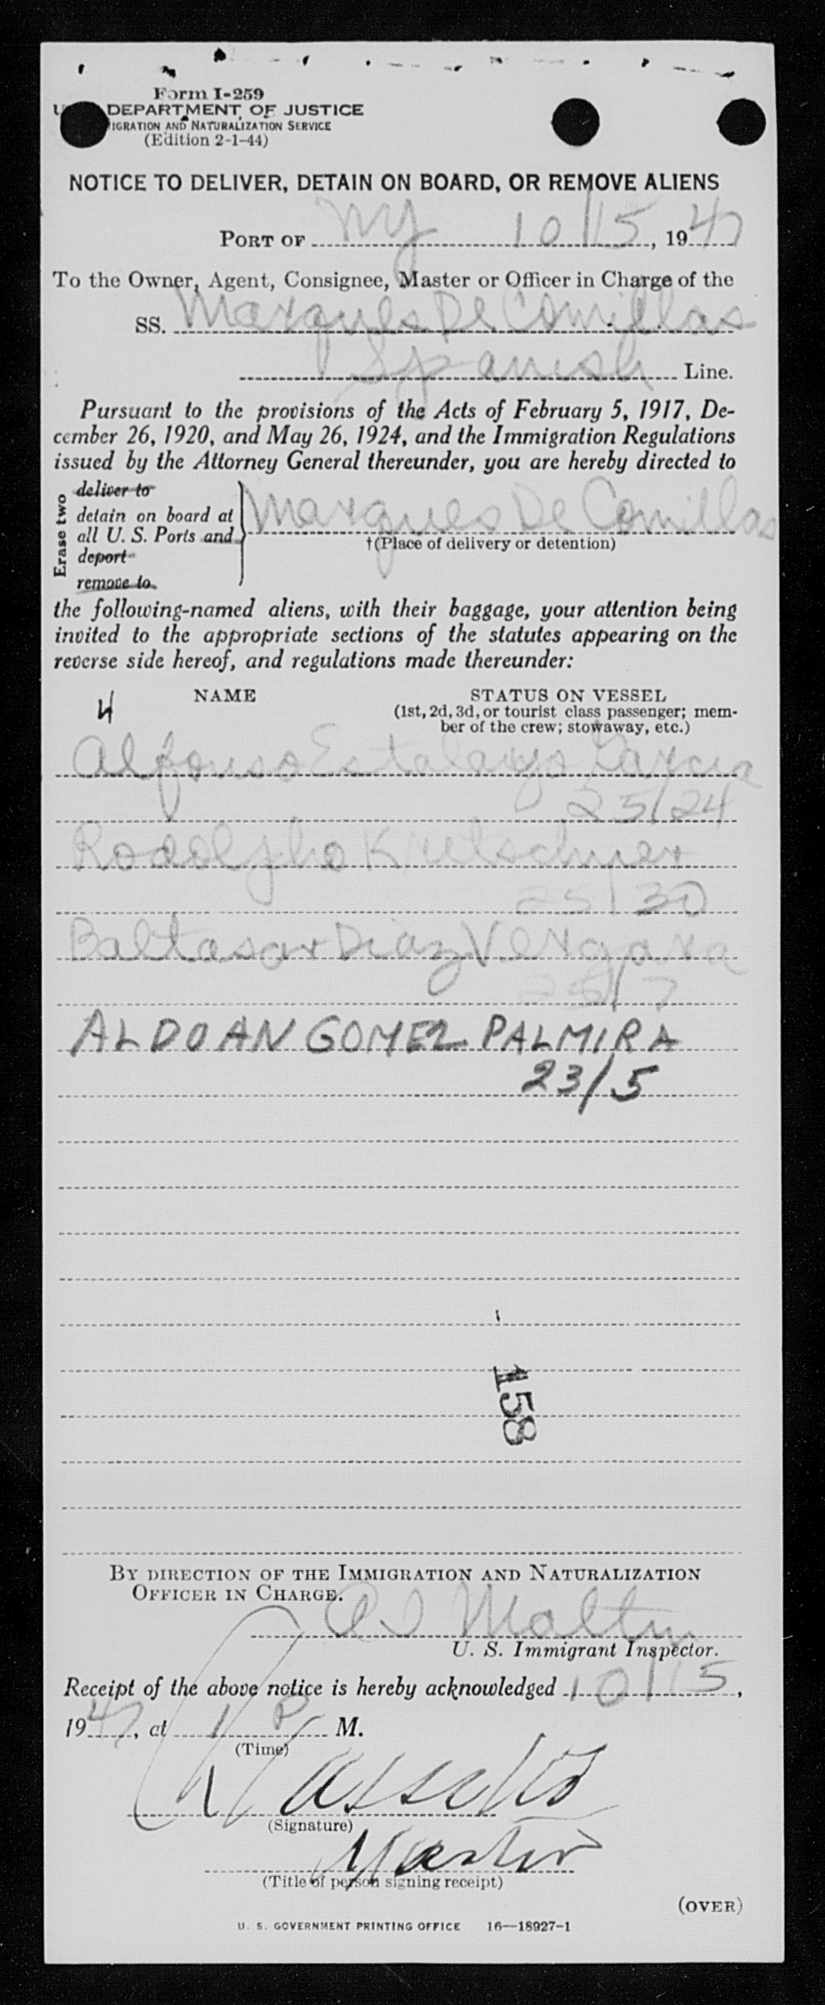 Form I-259
DEPARTMENT OF JUSTICE
IGRATION AND NATURALIZATION SERVICE
(Edition 2-1-44)
NOTICE TO DELIVER, DETAIN ON BOARD, OR REMOVE ALIENS
PORT OF NY 10/15, 1947
To the Owner, Agent, Consignee, Master or Officer in Charge of the
SS. Marques De Comillas
Spanish Line.
Pursuant to the provisions of the Acts of February 5, 1917, De-
cember 26, 1920, and May 26, 1924, and the Immigration Regulations
issued by the Attorney General thereunder, you are hereby directed to
Erase two
deliver to
detain on board at
all U. S. Ports and
deport
remove to
Marques De Comillas
†(Place of delivery or detention)
the following-named aliens, with their baggage, your attention being
invited to the appropriate sections of the statutes appearing on the
reverse side hereof, and regulations made thereunder:
4 NAME STATUS ON VESSEL
(1st, 2d, 3d, or tourist class passenger; mem-
ber of the crew; stowaway, etc.)
Alfonso Estalayo Garcia
25/24
Rodolfho Kretschmer
25/30
Baltasar Diaz Vergara
25/7
ALDOAN GOMEZ PALMIRA
23/5
158
BY DIRECTION OF THE IMMIGRATION AND NATURALIZATION
OFFICER IN CHARGE.
U. S. Immigrant Inspector.
Receipt of the above notice is hereby acknowledged 10/15,
1947, at 1 P M.
(Time)
(Signature)
Master
(Title of person signing receipt)
(OVER)
U. S. GOVERNMENT PRINTING OFFICE 16—18927-1